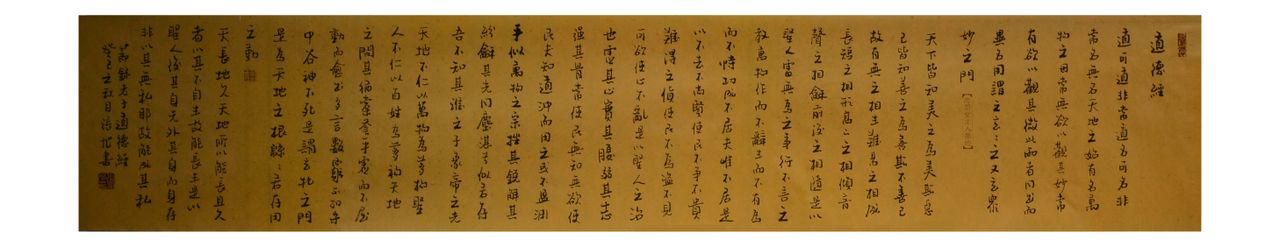 道德經
道可道非常道名可名非
常名無名天地之始有名萬
物之母常無欲以觀其妙常
有欲以觀其徼此兩者同出而
異名同謂之玄玄之又玄眾
妙之門
天下皆知美之為美斯惡
已皆知善之為善斯不善已
故有無之相生難易之相成
長短之相形高下之相傾音
聲之相和前後之相隨是以
聖人處無為之事行不言之
教萬物作而不辭生而不有為
而不恃功成不居夫唯不居是
以不去不尚賢使民不爭不貴
難得之貨使民不為盜不見
可欲使心不亂是以聖人之治
也虛其心實其腹弱其志
強其骨常使民無知無欲使
民夫知道沖而用之或不盈淵
乎似萬物之宗挫其銳解其
紛和其光同塵湛兮似若存
吾不知其誰之子象帝之先
天地不仁以萬物為芻狗聖
人不仁以百姓為芻狗天地
之間其猶橐籥乎虛而不屈
動而愈出多言數窮不如守
中谷神不死是謂玄牝之門
是為天地之根綿綿若存用
之勤
天長地久天地所以能長且久
者以其不自生故能長生是以
聖人後其身先外其身而身存
非以其無私耶故能成其私
老子道德經